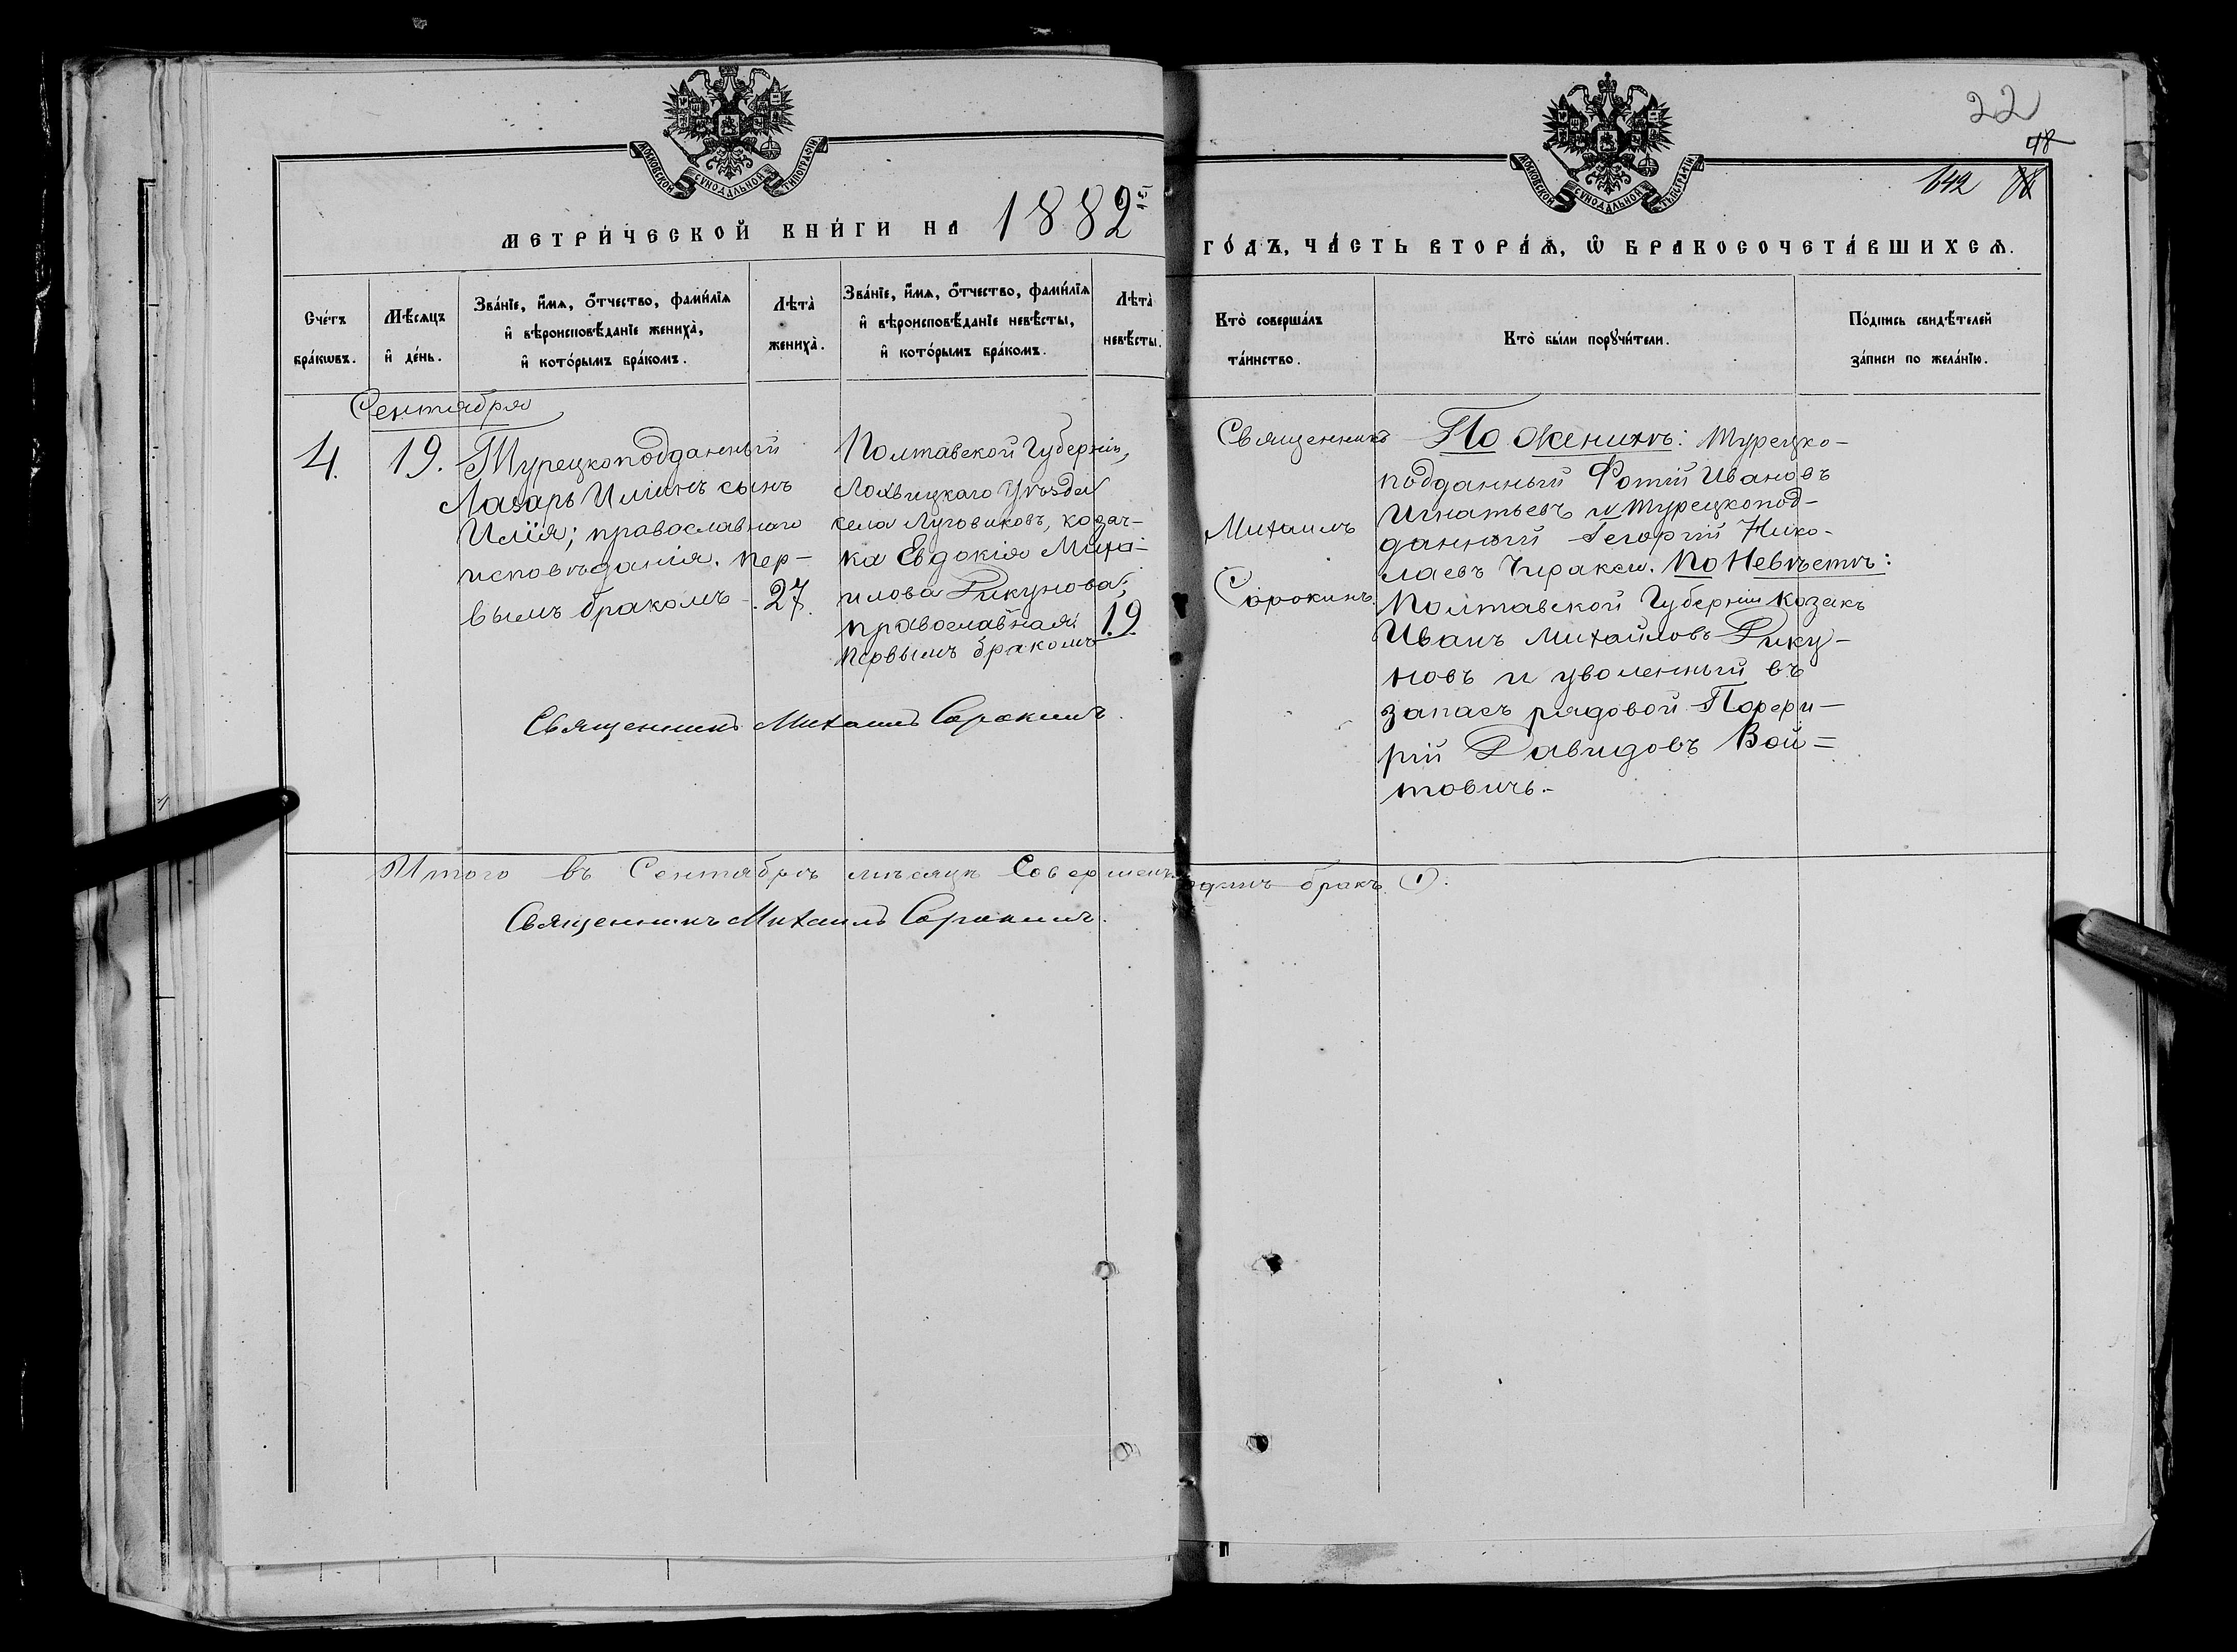 22
48
142
МОСКОВСКОЙ СУНОДАЛЬНОЙ ТИПОГРАФІИ
МОСКОВСКОЙ СУНОДАЛЬНОЙ ТИПОГРАФІИ
МЕТРИ́ЧЕСКОЙ КНИ́ГИ НА 1882й
ГО́ДЪ, ЧА́СТЬ ВТОРА́Ѧ, Ѽ БРАКОСОЧЕТА́ВШИХСѦ.
Сче́тъ бра́кѡвъ.
Мѣ́сяцъ и҆ де́нь.
Зва́нїе, и҆́мѧ, ѻ҆́тчество, фами́лїѧ и҆ вѣроисповѣ́данїе жениха̀, и҆ кото́рымъ бра́комъ.
Лѣта̀ жениха̀.
Зва́нїе, и҆́мѧ, ѻ҆́тчество, фами́лїѧ и҆ вѣроисповѣ́данїе невѣ́сты, и҆ кото́рымъ бра́комъ.
Лѣта̀ невѣ́сты.
Кто̀ соверша́лъ та́инство.
Кто̀ бы́ли порꙋчи́тели.
По́дпись свидѣ́телей за́писи по жела́нїю.
Сентября
4.
19.
Турецкоподданный
Лазарь Иліинъ сынъ
Илія; православнаго
исповѣданія. пер-
вымъ бракомъ
27.
Полтавской Губерніи,
Лохвицкаго Уѣзда
села Луговиковъ, козач-
ка Евдокія Миха-
илова Дикунова;
православная.
первымъ бракомъ
19
Священникъ
Михаилъ
Сорокинъ
По Женихѣ: Турецко-
подданный Фотій Ивановъ
Игнатьевъ и турецкопод-
данный Георгій Нико-
лаевъ. По Невѣстѣ:
Полтавской Губерніи козакъ
Иванъ Михайловъ Дику-
новъ и уволенный въ
запасъ рядовой Порфи-
рій Давидовъ Вой=
товичъ.-
Священникъ Михаилъ Сорокинъ.
Итого въ Сентябрѣ мѣсяцѣ Совершенъ одинъ бракъ (1).
Священникъ Михаилъ Сорокинъ.